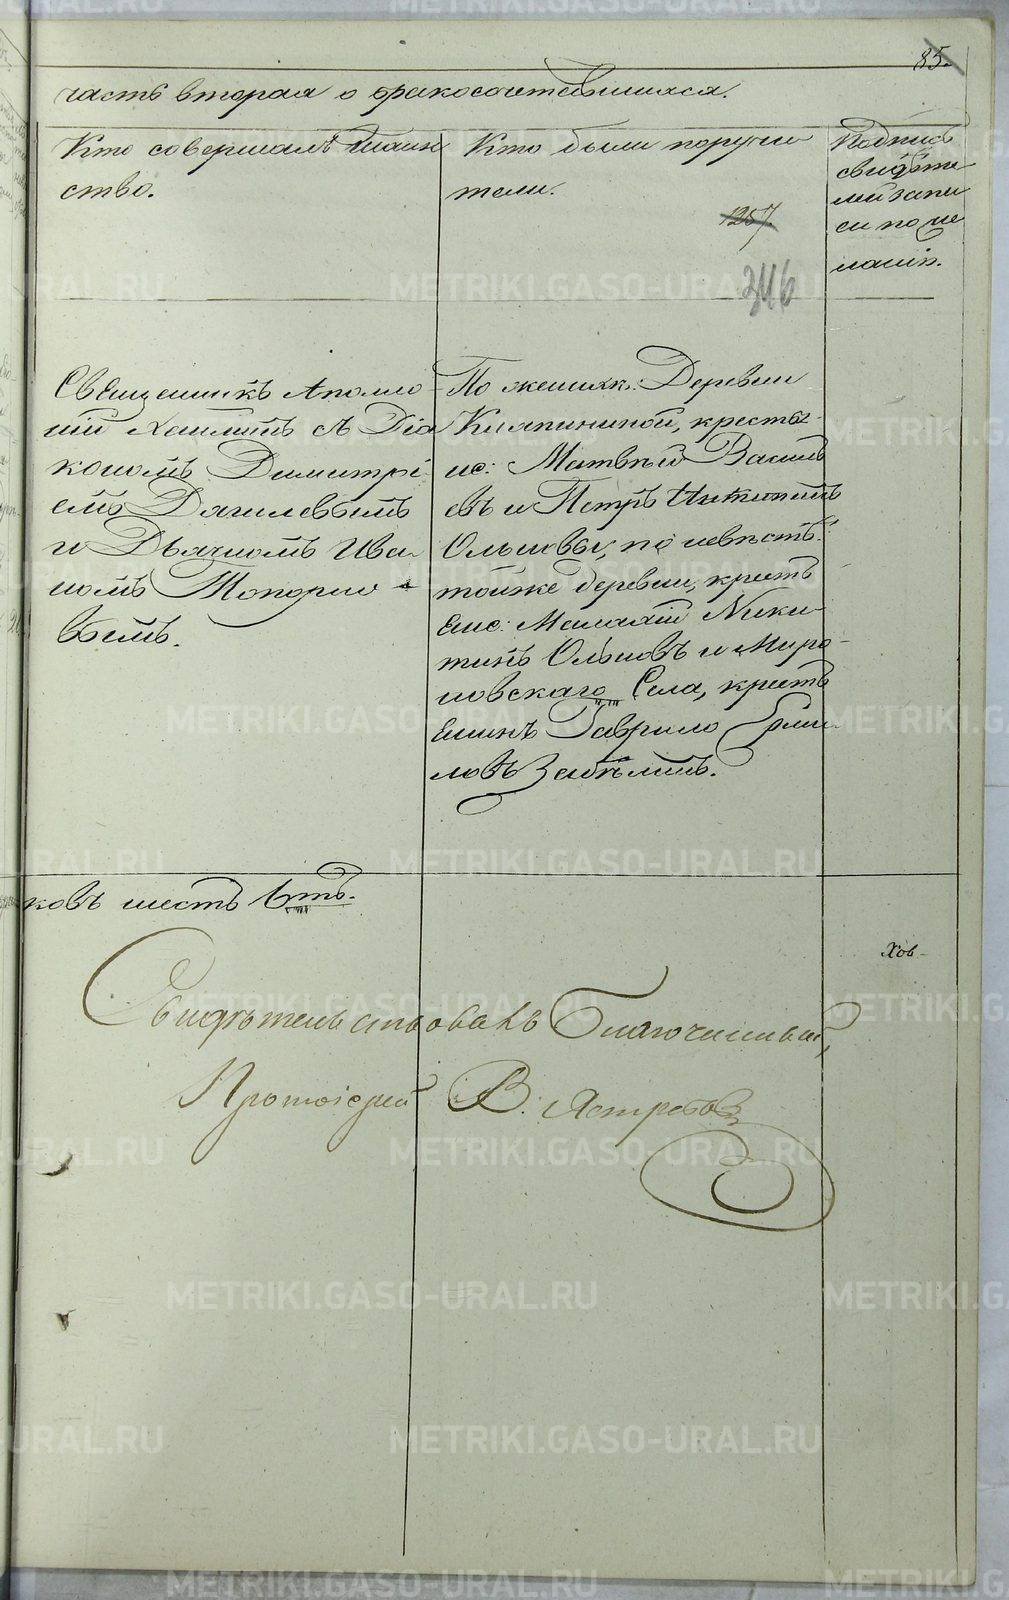 85.
часть вторая о бракосочетавшихся.
Кто совершалъ таин
ство.
Кто были поручи
тели.
Подпись
свидѣте
лей запи
си по же
ланію.
1257.
346
Священникъ Аполло
ній съ Діа
кономъ Димитрі
емъ Дягилевымъ
и Дьячкомъ Ива
номъ Топорко
вымъ.
По женихѣ: Деревни
крестья-
не: Матвѣй Василь
евъ и Петръ Никитинъ
Ольковы, по невѣстѣ:
тойже деревни, кресть
Ники
тинъ Ольковъ и Миро
новскаго Села, кресть
янинъ Гаврило Ерми
ловъ
ковъ шесть 6ть.
Хов
Свидѣтельствовалъ Благочинный,
Протоіерей В. Ястребовъ
METRIKI.GASO-URAL.RU